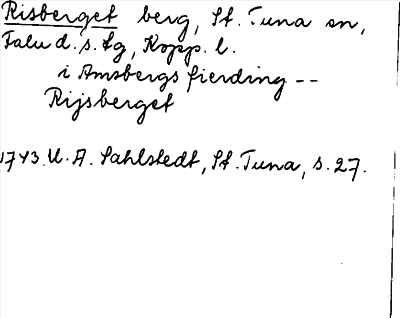 Risberget berg, St. Tuna sn,
Falu d. s. tg, Kopp. l.
i Amsbergs fierding --
Rijsberget
1743. U. A. Sahlstedt, St. Tuna, s. 27.